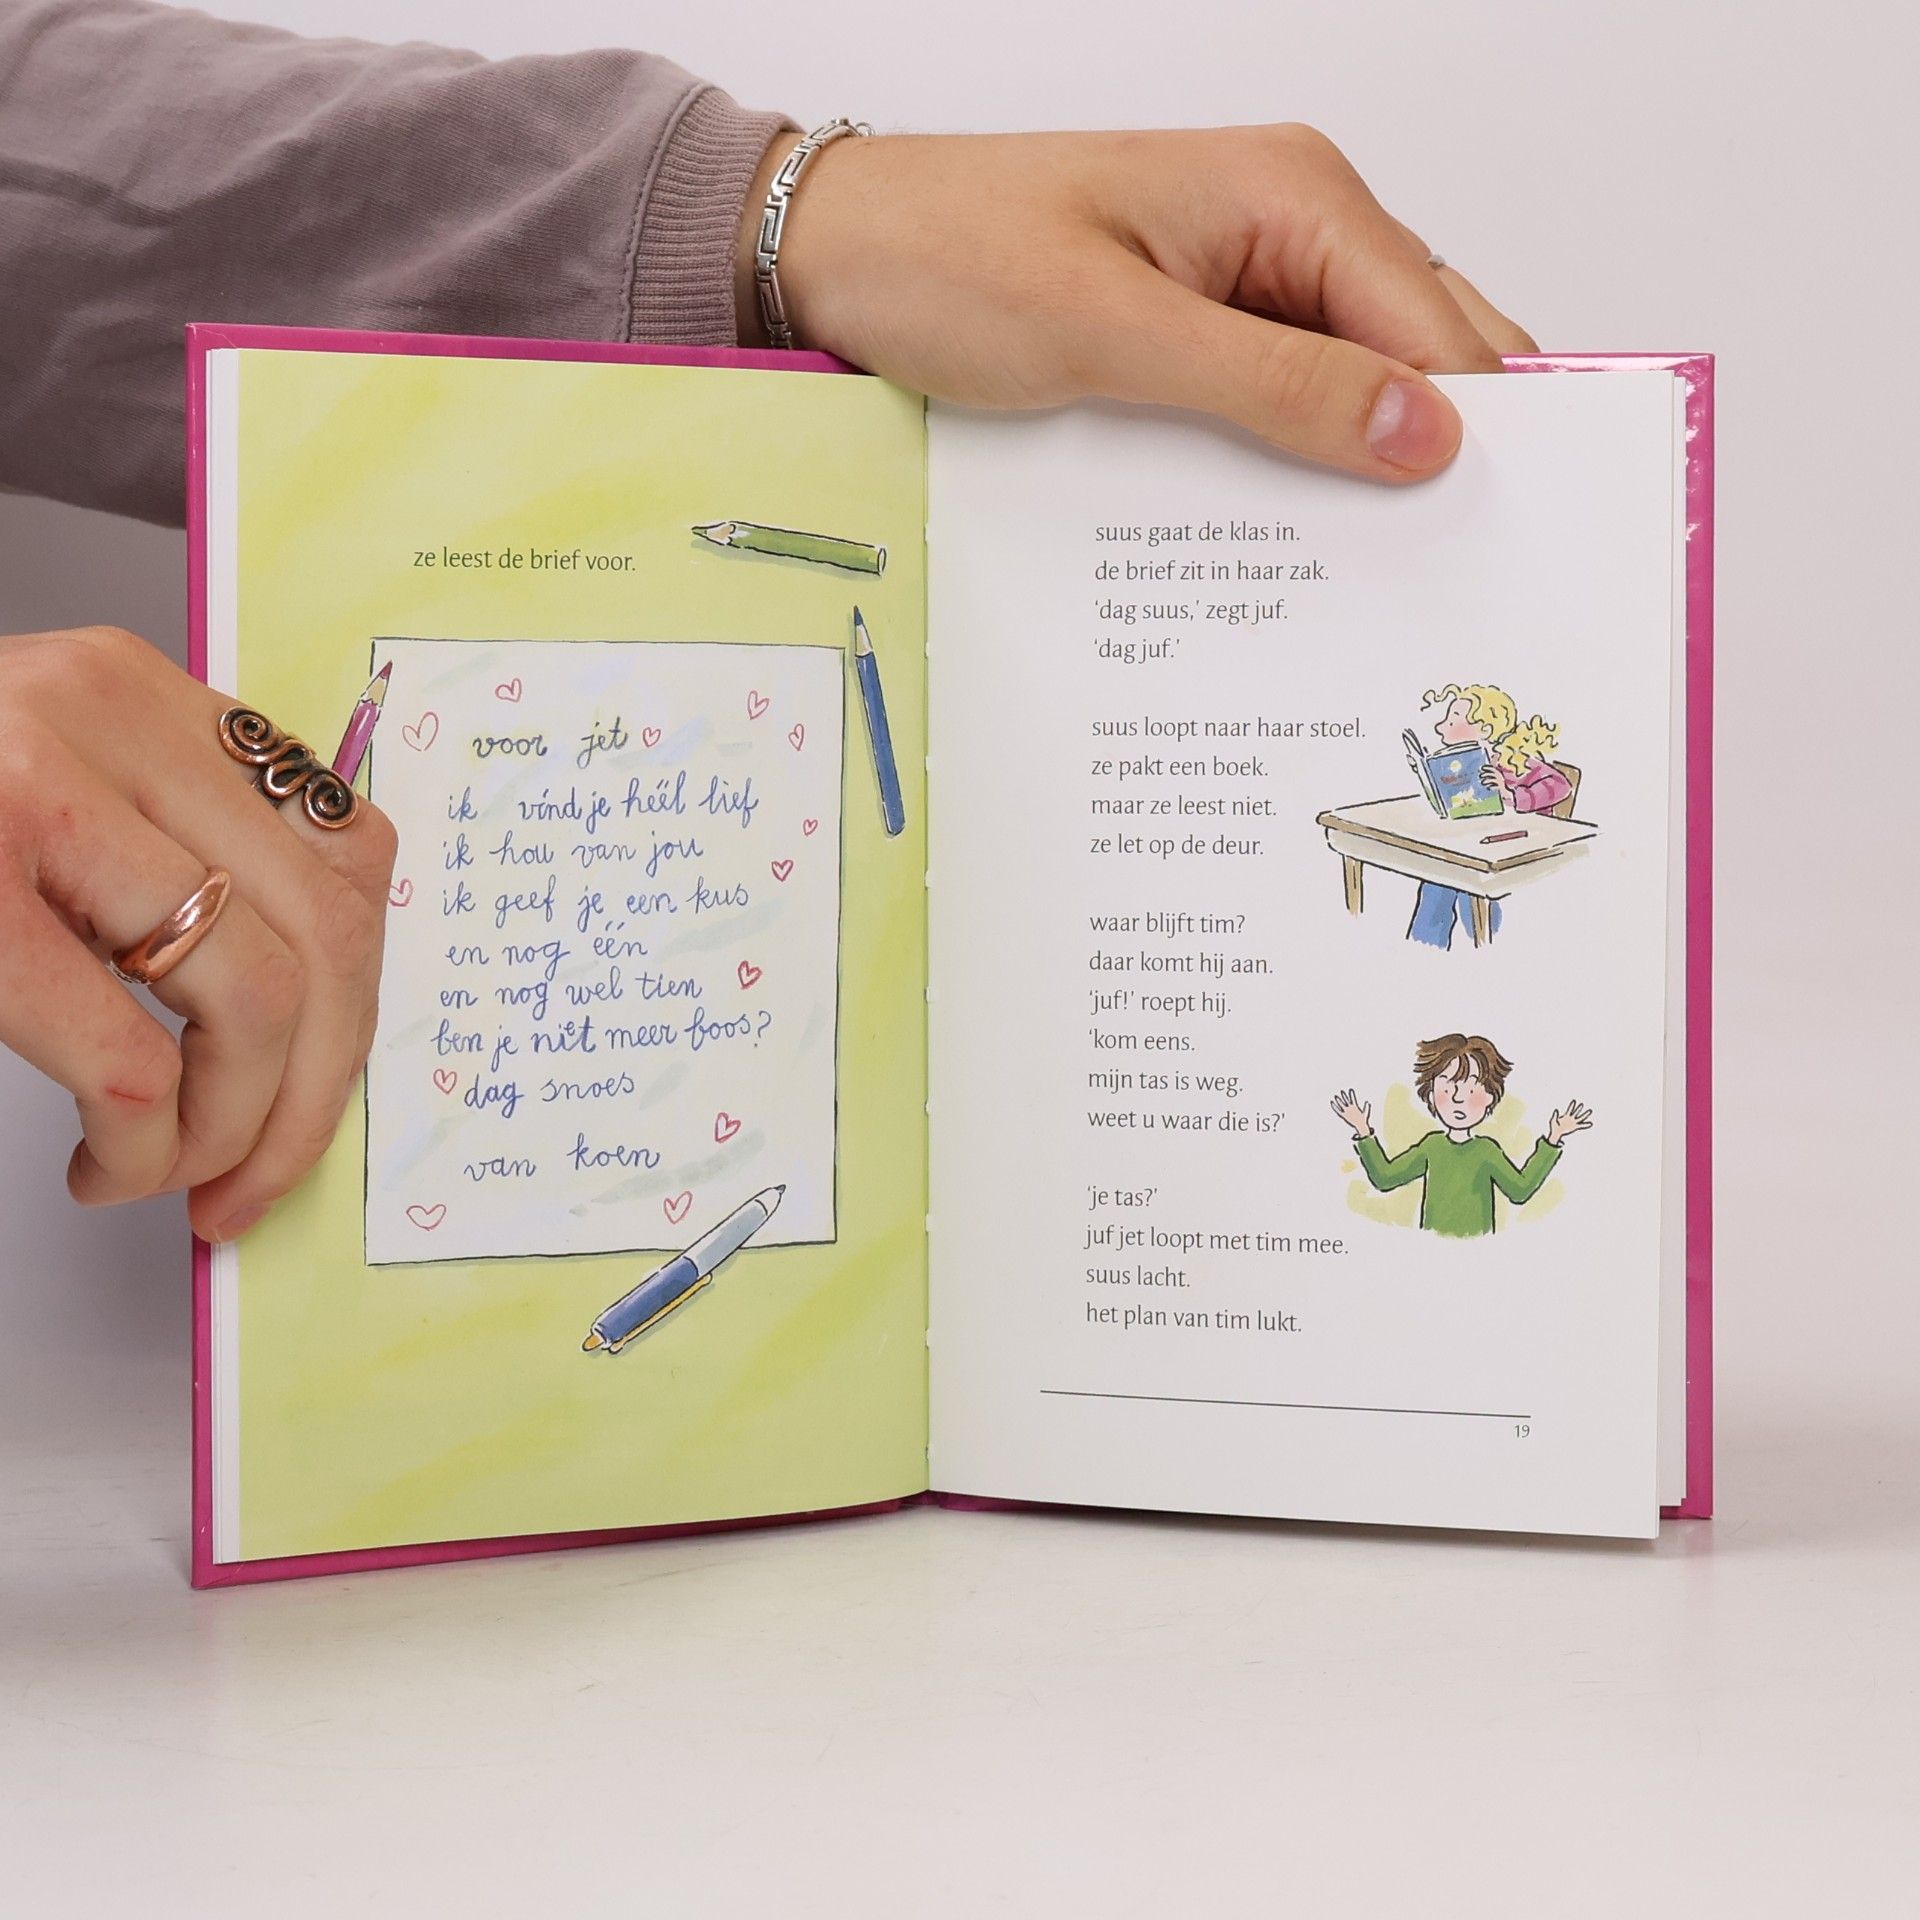 ze leest de brief voor.
voor jet
ik vind je héél lief
ik hou van jou
ik geef je een kus
en nog één
en nog wel tien
ben je niet meer boos?
dag snoes
van koen
suus gaat de klas in.
de brief zit in haar zak.
‘dag suus,’ zegt juf.
‘dag juf.’
suus loopt naar haar stoel.
ze pakt een boek.
maar ze leest niet.
ze let op de deur.
waar blijft tim?
daar komt hij aan.
‘juf!’ roept hij.
‘kom eens.
mijn tas is weg.
weet u waar die is?’
‘je tas?’
juf jet loopt met tim mee.
suus lacht.
het plan van tim lukt.
19